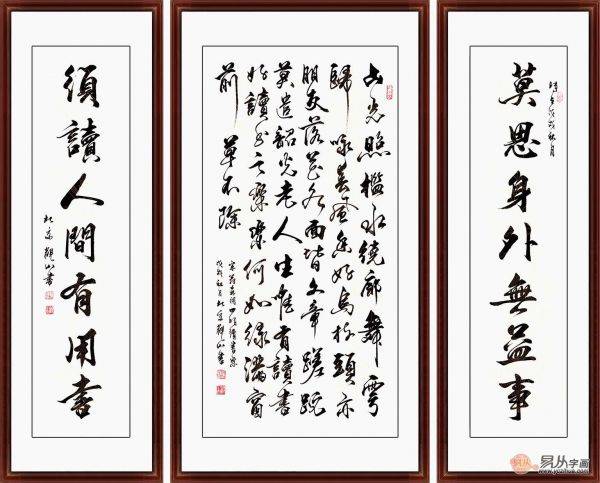 莫思身外無益事
時在戊戌秋月
山光照檻水繞廊舞雩
歸詠春風香好鳥枝頭亦
朋友落花水面皆文章蹉跎
莫遣韶光老人生惟有讀書
好讀書之樂樂何如綠滿窗
前草不除
戊戌秋月北京觀山書
須讀人間有用書
北京觀山書
易从字画
www.yczihua.com